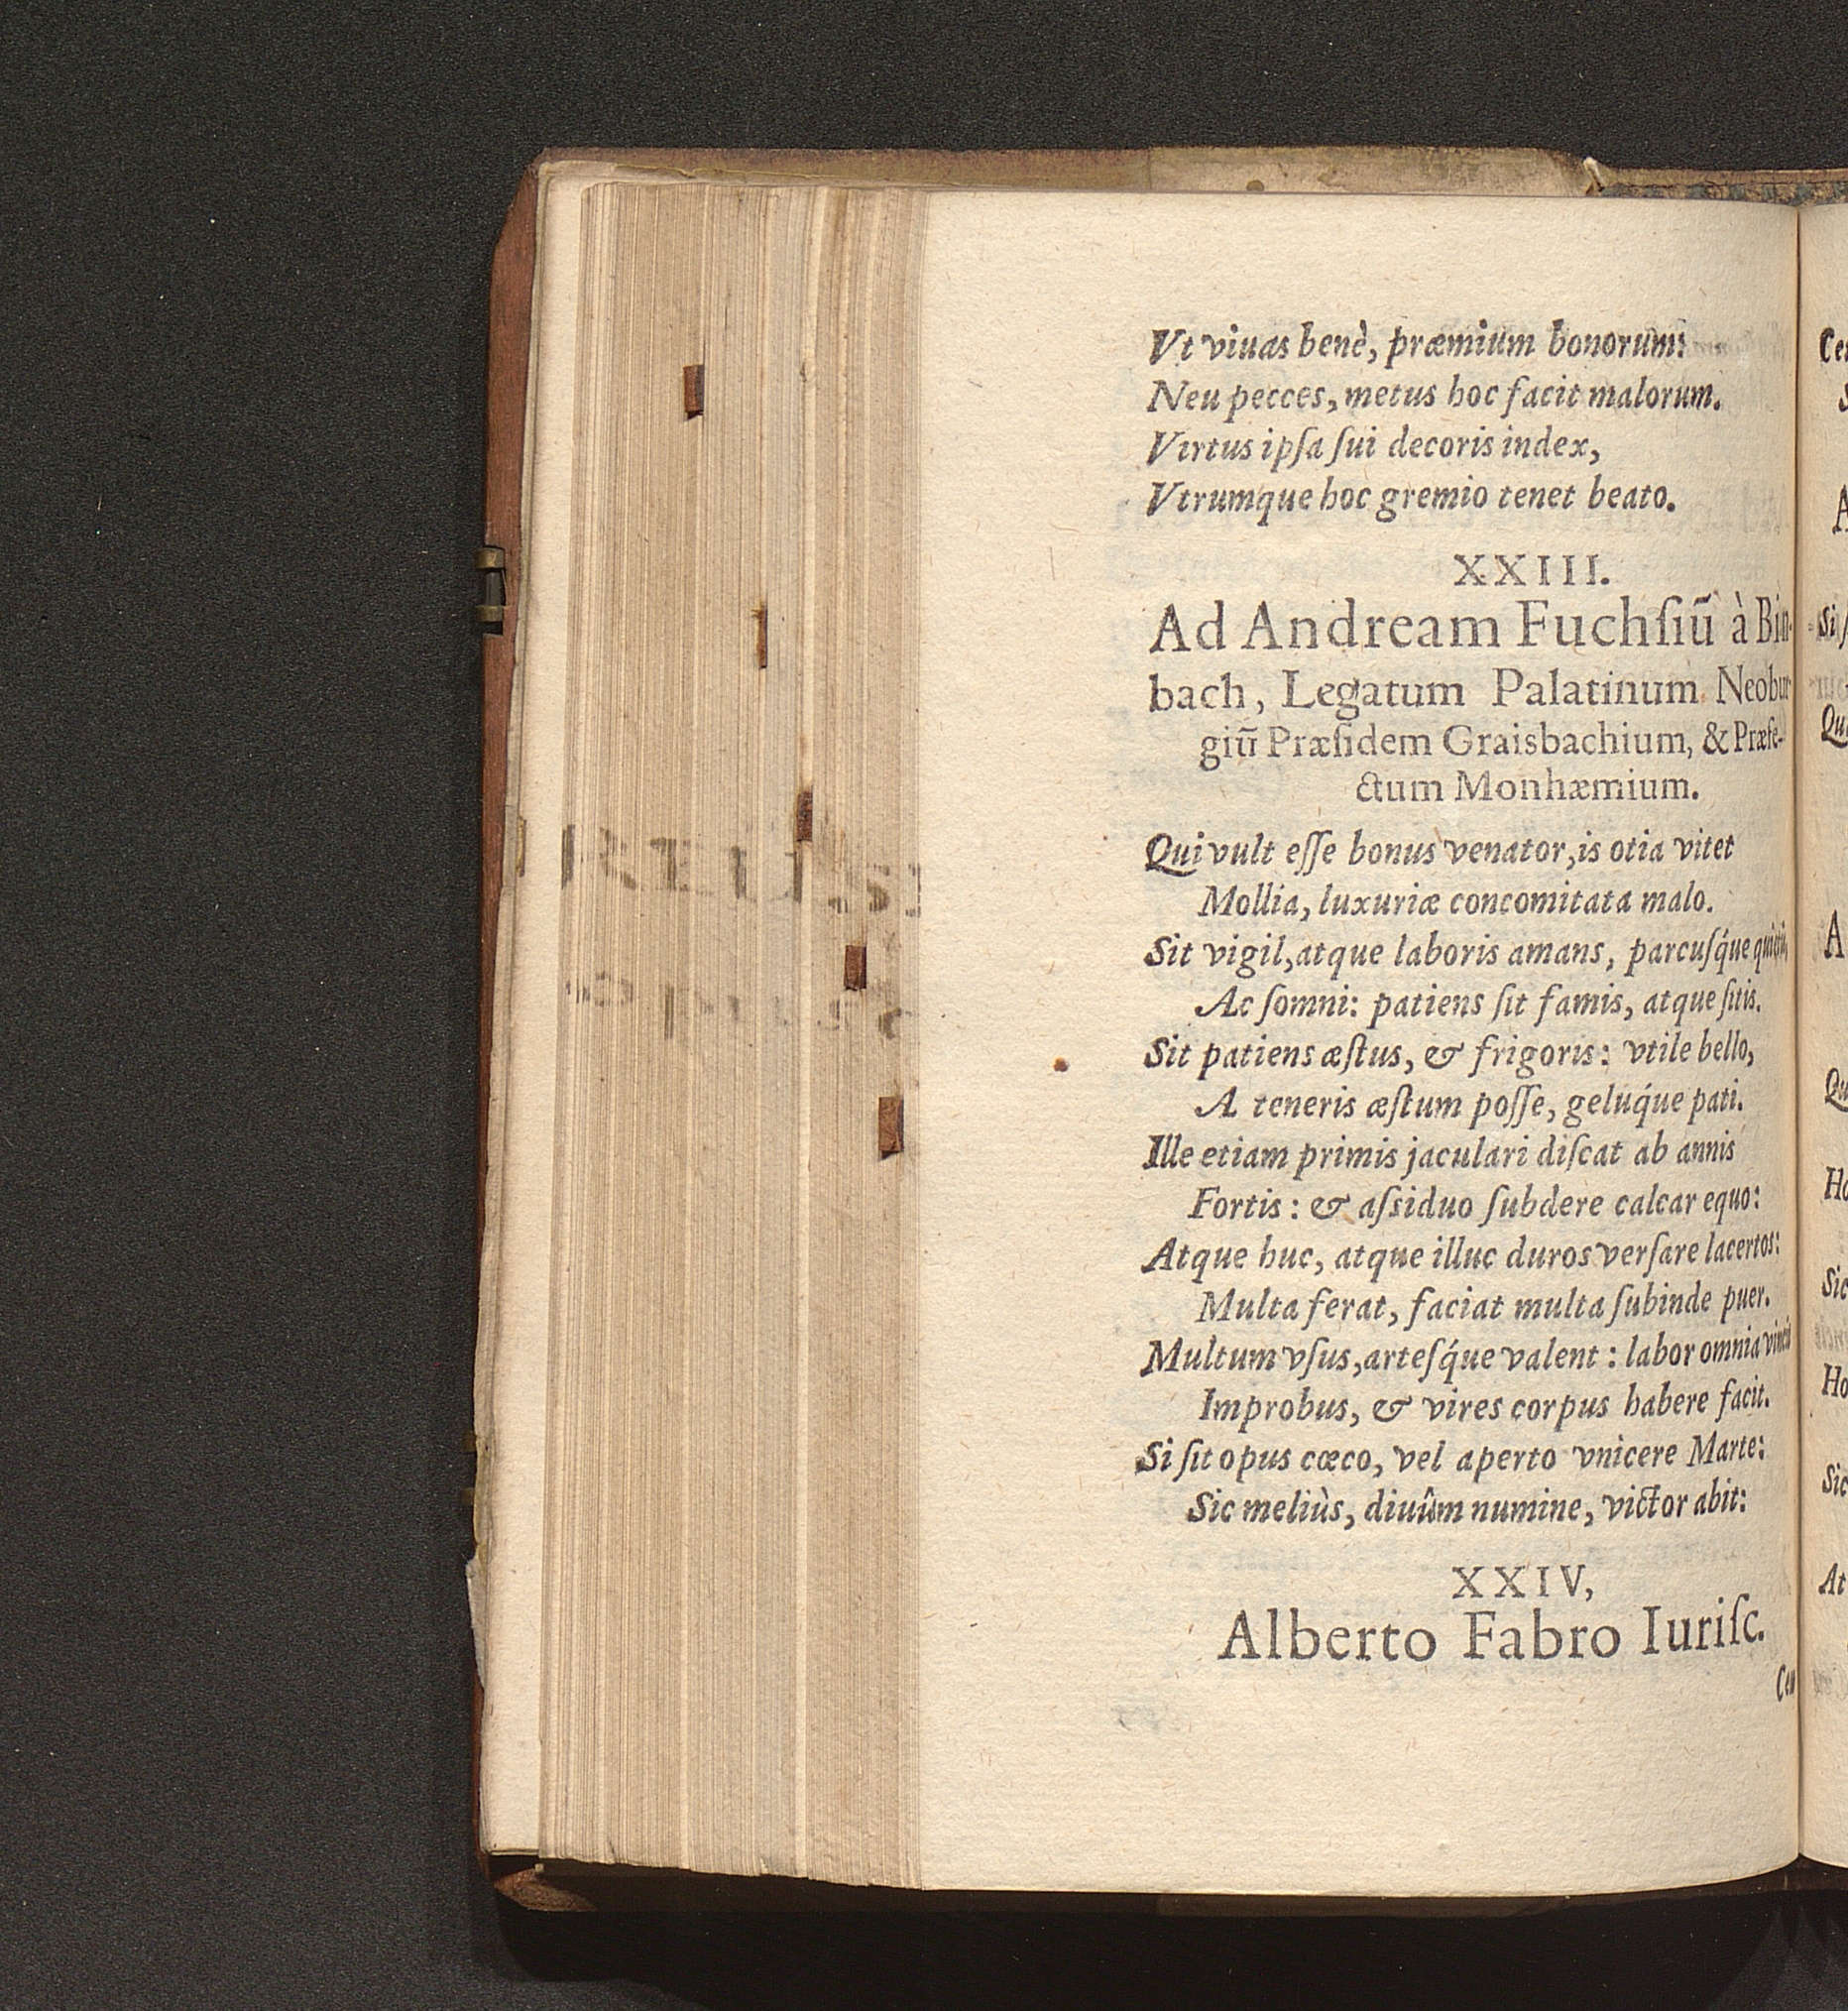 Vt viuas benè, præmium bonorum:
Neu pecces, metus hoc facit malorum.
Virtus ipſa ſui decoris index,
Vtrumque hoc gremio tenet beato.
XXIII.
Ad Andream Fuchſiũ à Bin-
bach, Legatum Palatinum Neobur-
giũ Præſidem Graisbachium, & Præfe-
ctum Monhæmium.
Qui vult eſſe bonus venator, is otia vitet
Mollia, luxuriæ concomitata malo.
Sit vigil, atque laboris amans, parcuſq́ue
Ac ſomni: patiens ſit famis, atque ſitis.
Sit patiens æſtus, & frigoris: vtile bello,
A teneris æſtum poſſe, geluq́ue pati.
Ille etiam primis jaculari diſcat ab annis
Fortis: & aſsiduo ſubdere calcar equo:
Atque huc, atque illuc duros verſare lacertos:
Multa ferat, faciat multa ſubinde puer.
Multum vſus, arteſq́ue valent: labor omnia
Improbus, & vires corpus habere facit.
Si ſit opus cœco, vel aperto vnicere Marte:
Sic meliùs, diuûm numine, victor abit:
XXIV,
Alberto Fabro Iuriſc.